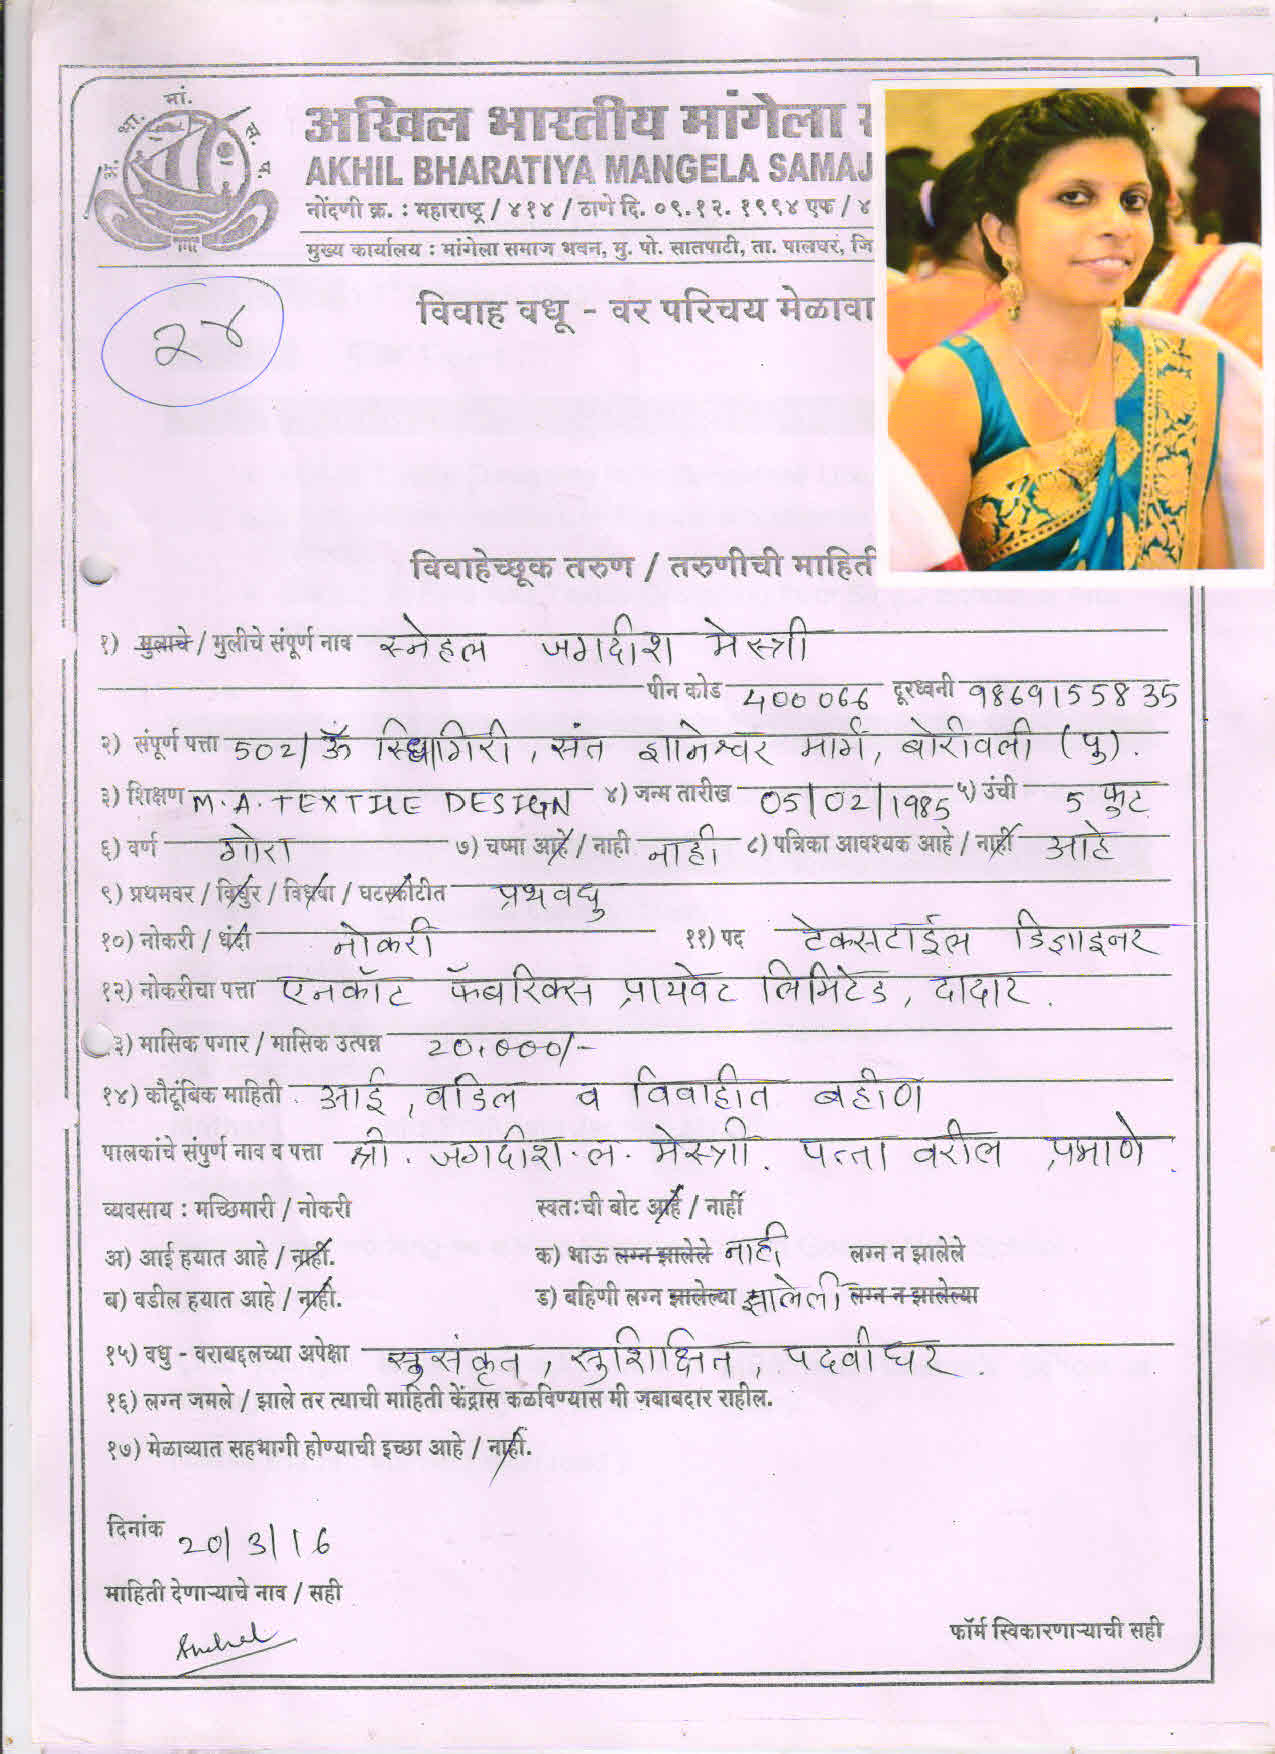 अ. भा. मां. स. प.
अखिल भारतीय मांगेला
AKHIL BHARATIYA MANGELA SAMAJ
नोंदणी क्र. : महाराष्ट्र / ४१४ / ठाणे दि. ०९.१२. १९९४ एफ / ४
मुख्य कार्यालय : मांगेला समाज भवन, मु. पो. सातपाटी, ता. पालघर, जि
२४
विवाह वधू - वर परिचय मेळावा
विवाहेच्छूक तरुण / तरुणीची माहिती
१) मुलाचे / मुलीचे संपूर्ण नाव स्नेहल जगदीश मेस्त्री
पीन कोड 400066 दूरध्वनी 9869155835
२) संपूर्ण पत्ता 502/ ॐ सिध्दागिरी, संत ज्ञानेश्वर मार्ग, बोरीवली (पु).
३) शिक्षण M.A. TEXTILE DESIGN ४) जन्म तारीख 05/02/1985 ५) उंची 5 फुट
६) वर्ण गोरा ७) चष्मा आहे / नाही नाही ८) पत्रिका आवश्यक आहे / नाहीं आहे
९) प्रथमवर / विधुर / विधवा / घटस्फोटीत प्रथवधु
१०) नोकरी / धंदा नोकरी ११) पद टेक्सटाईल डिझाइनर
१२) नोकरीचा पत्ता एनकॉट फॅबरिक्स प्रायवेट लिमिटेड, दादर.
३) मासिक पगार / मासिक उत्पन्न 20,000/-
१४) कौटूंबिक माहिती . आई, वडिल व विवाहीत बहीण
पालकांचे संपुर्ण नाव व पत्ता श्री. जगदीश. ल. मेस्त्री. पत्ता वरील प्रमाणे.
व्यवसाय : मच्छिमारी / नोकरी स्वतःची बोट आहे / नाहीं
अ) आई हयात आहे / नाहीं. क) भाऊ लग्न झालेले नाही लग्न न झालेले
ब) वडील हयात आहे / नाही. ड) बहिणी लग्न झालेल्या झालेली लग्न न झालेल्या
१५) वधु - वराबद्दलच्या अपेक्षा सुसंकृत, सुशिक्षित, पदवीधर.
१६) लग्न जमले / झाले तर त्याची माहिती केंद्रास कळविण्यास मी जबाबदार राहील.
१७) मेळाव्यात सहभागी होण्याची इच्छा आहे / नाहीं.
दिनांक 20/3/16
माहिती देणाऱ्याचे नाव / सही
Snehal
फॉर्म स्विकारणाऱ्याची सही